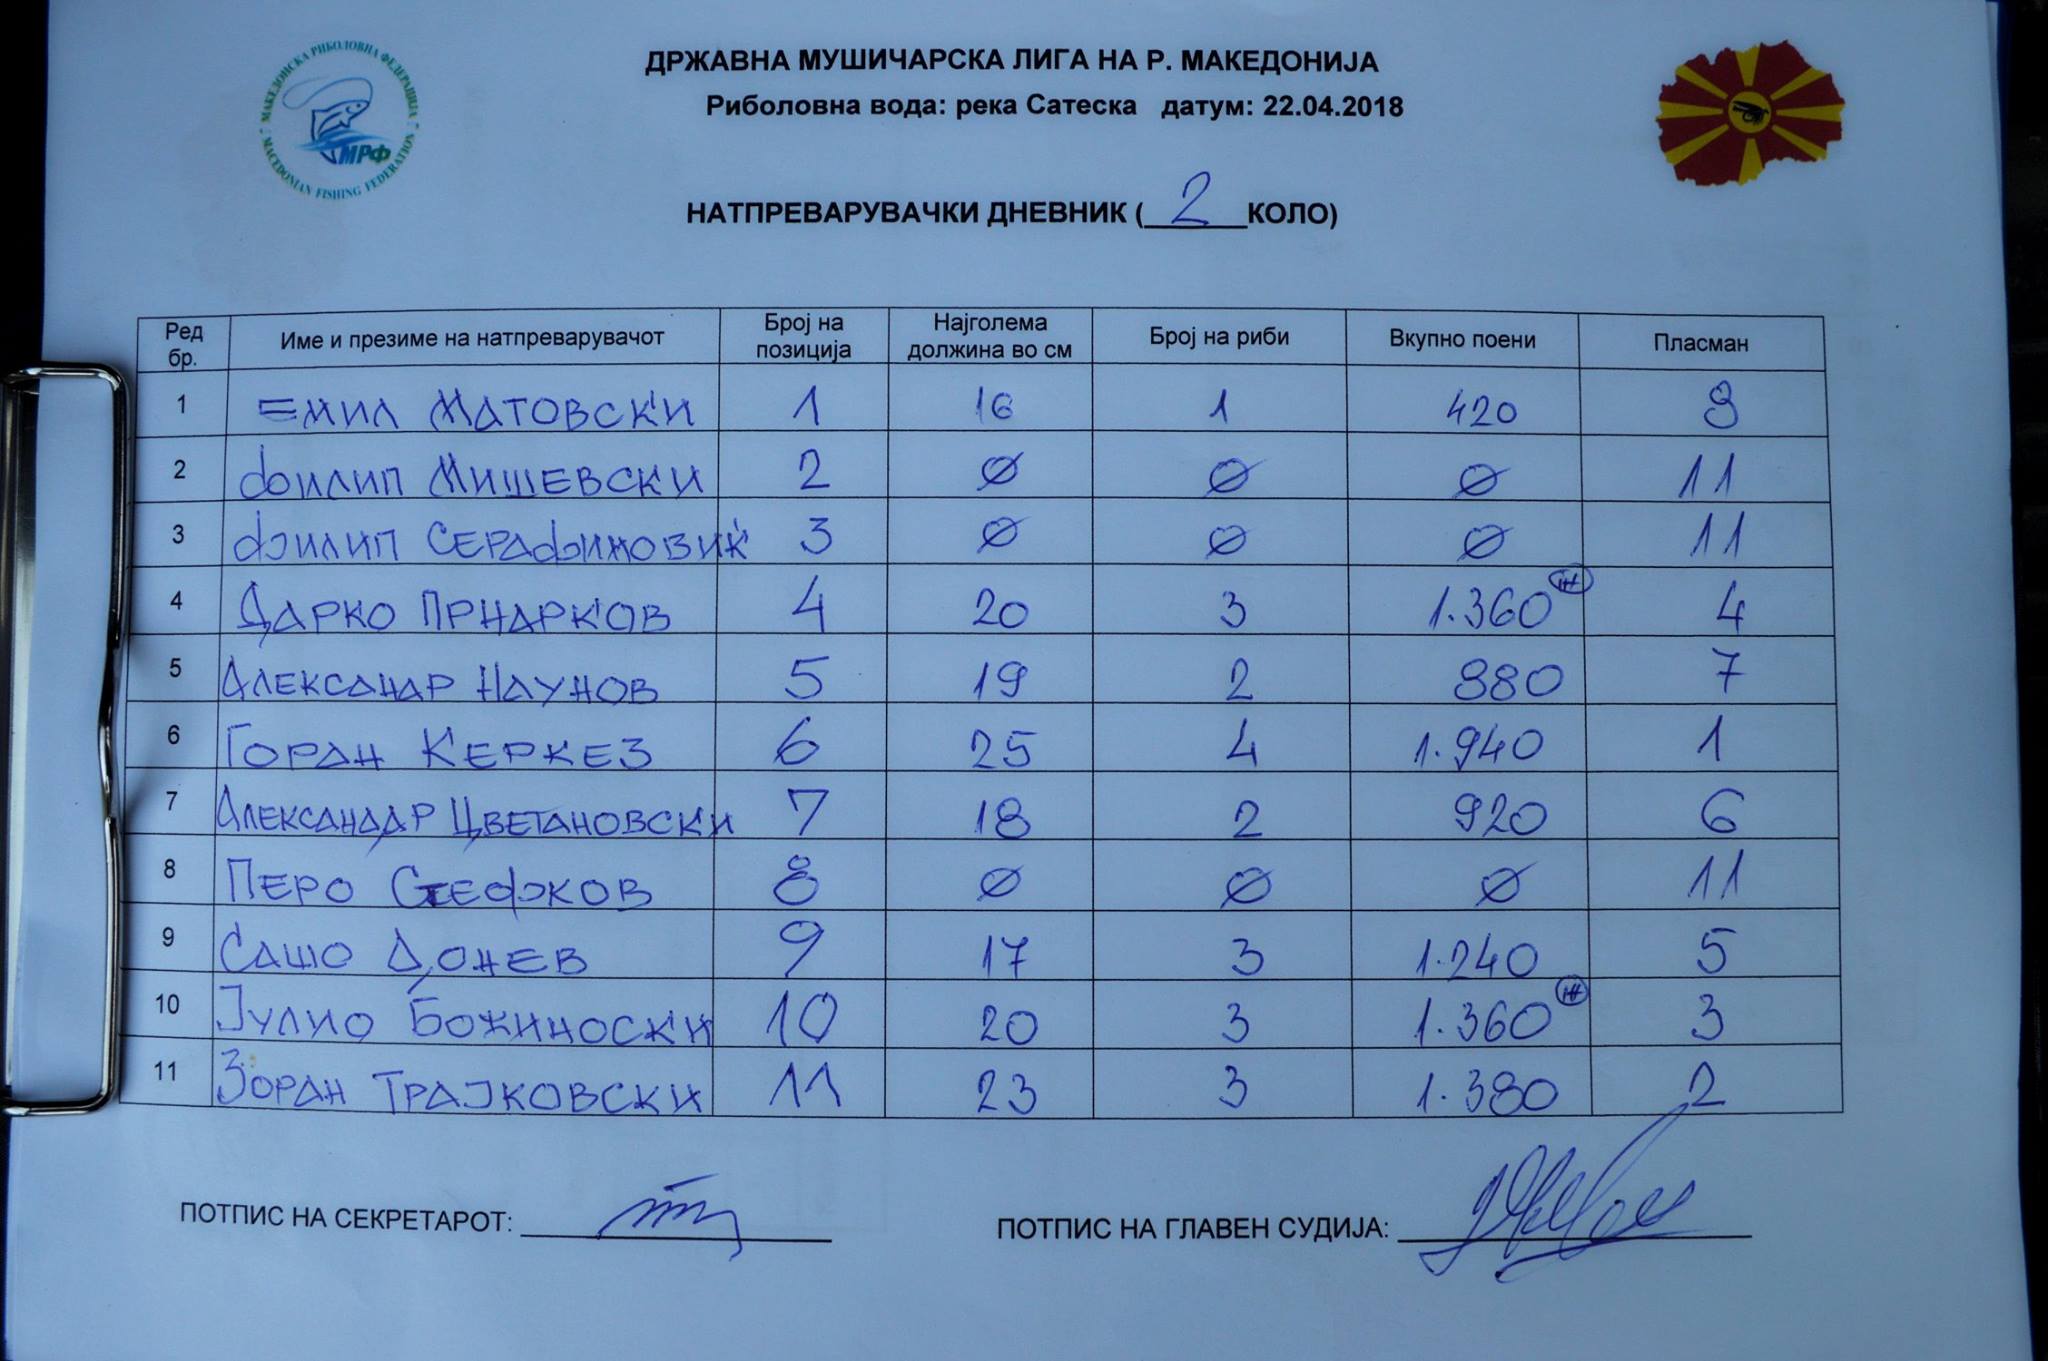 МАКЕДОНСКА РИБОЛОВНА ФЕДЕРАЦИЈА
МРФ
MACEDONIAN FISHING FEDERATION
ДРЖАВНА МУШИЧАРСКА ЛИГА НА Р. МАКЕДОНИЈА
Риболовна вода: река Сатеска датум: 22.04.2018
НАТПРЕВАРУВАЧКИ ДНЕВНИК ( 2 КОЛО)
Ред бр. Име и презиме на натпреварувачот Број на позиција Најголема должина во см Број на риби Вкупно поени Пласман
1 ЕМИЛ МАТОВСКИ 1 16 1 420 9
2 ФИЛИП МИШЕВСКИ 2 Ø Ø Ø 11
3 ФИЛИП СЕРАФИМОВИЌ 3 Ø Ø Ø 11
4 ДАРКО ПРНАРКОВ 4 20 3 1.360 4
5 АЛЕКСАНДАР НАУНОВ 5 19 2 880 7
6 ГОРАН КЕРКЕЗ 6 25 4 1.940 1
7 АЛЕКСАНДАР ЦВЕТАНОВСКИ 7 18 2 920 6
8 ПЕРО СТЕФКОВ 8 Ø Ø Ø 11
9 САШО ДОНЕВ 9 17 3 1.240 5
10 ЈУЛИО БОЖИНОСКИ 10 20 3 1.360 3
11 ЗОРАН ТРАЈКОВСКИ 11 23 3 1.380 2
ПОТПИС НА СЕКРЕТАРОТ: ПОТПИС НА ГЛАВЕН СУДИЈА: